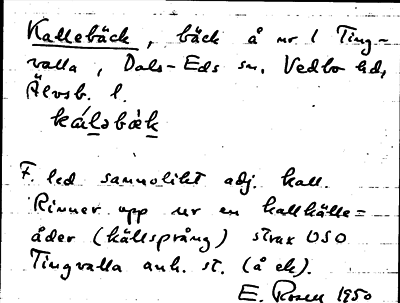 Kallebäck, bäck å nr 1 Ting-
valla, Dals-Eds sn, Vedbo hd,
Älvsb. l.
kálǝbàk
F. led sannolikt adj. kall.
Rinner upp ur en kallkälle=
åder (källsprång) strax OSO
Tingvalla anh. st. (å ek).
E. Rosell 1950